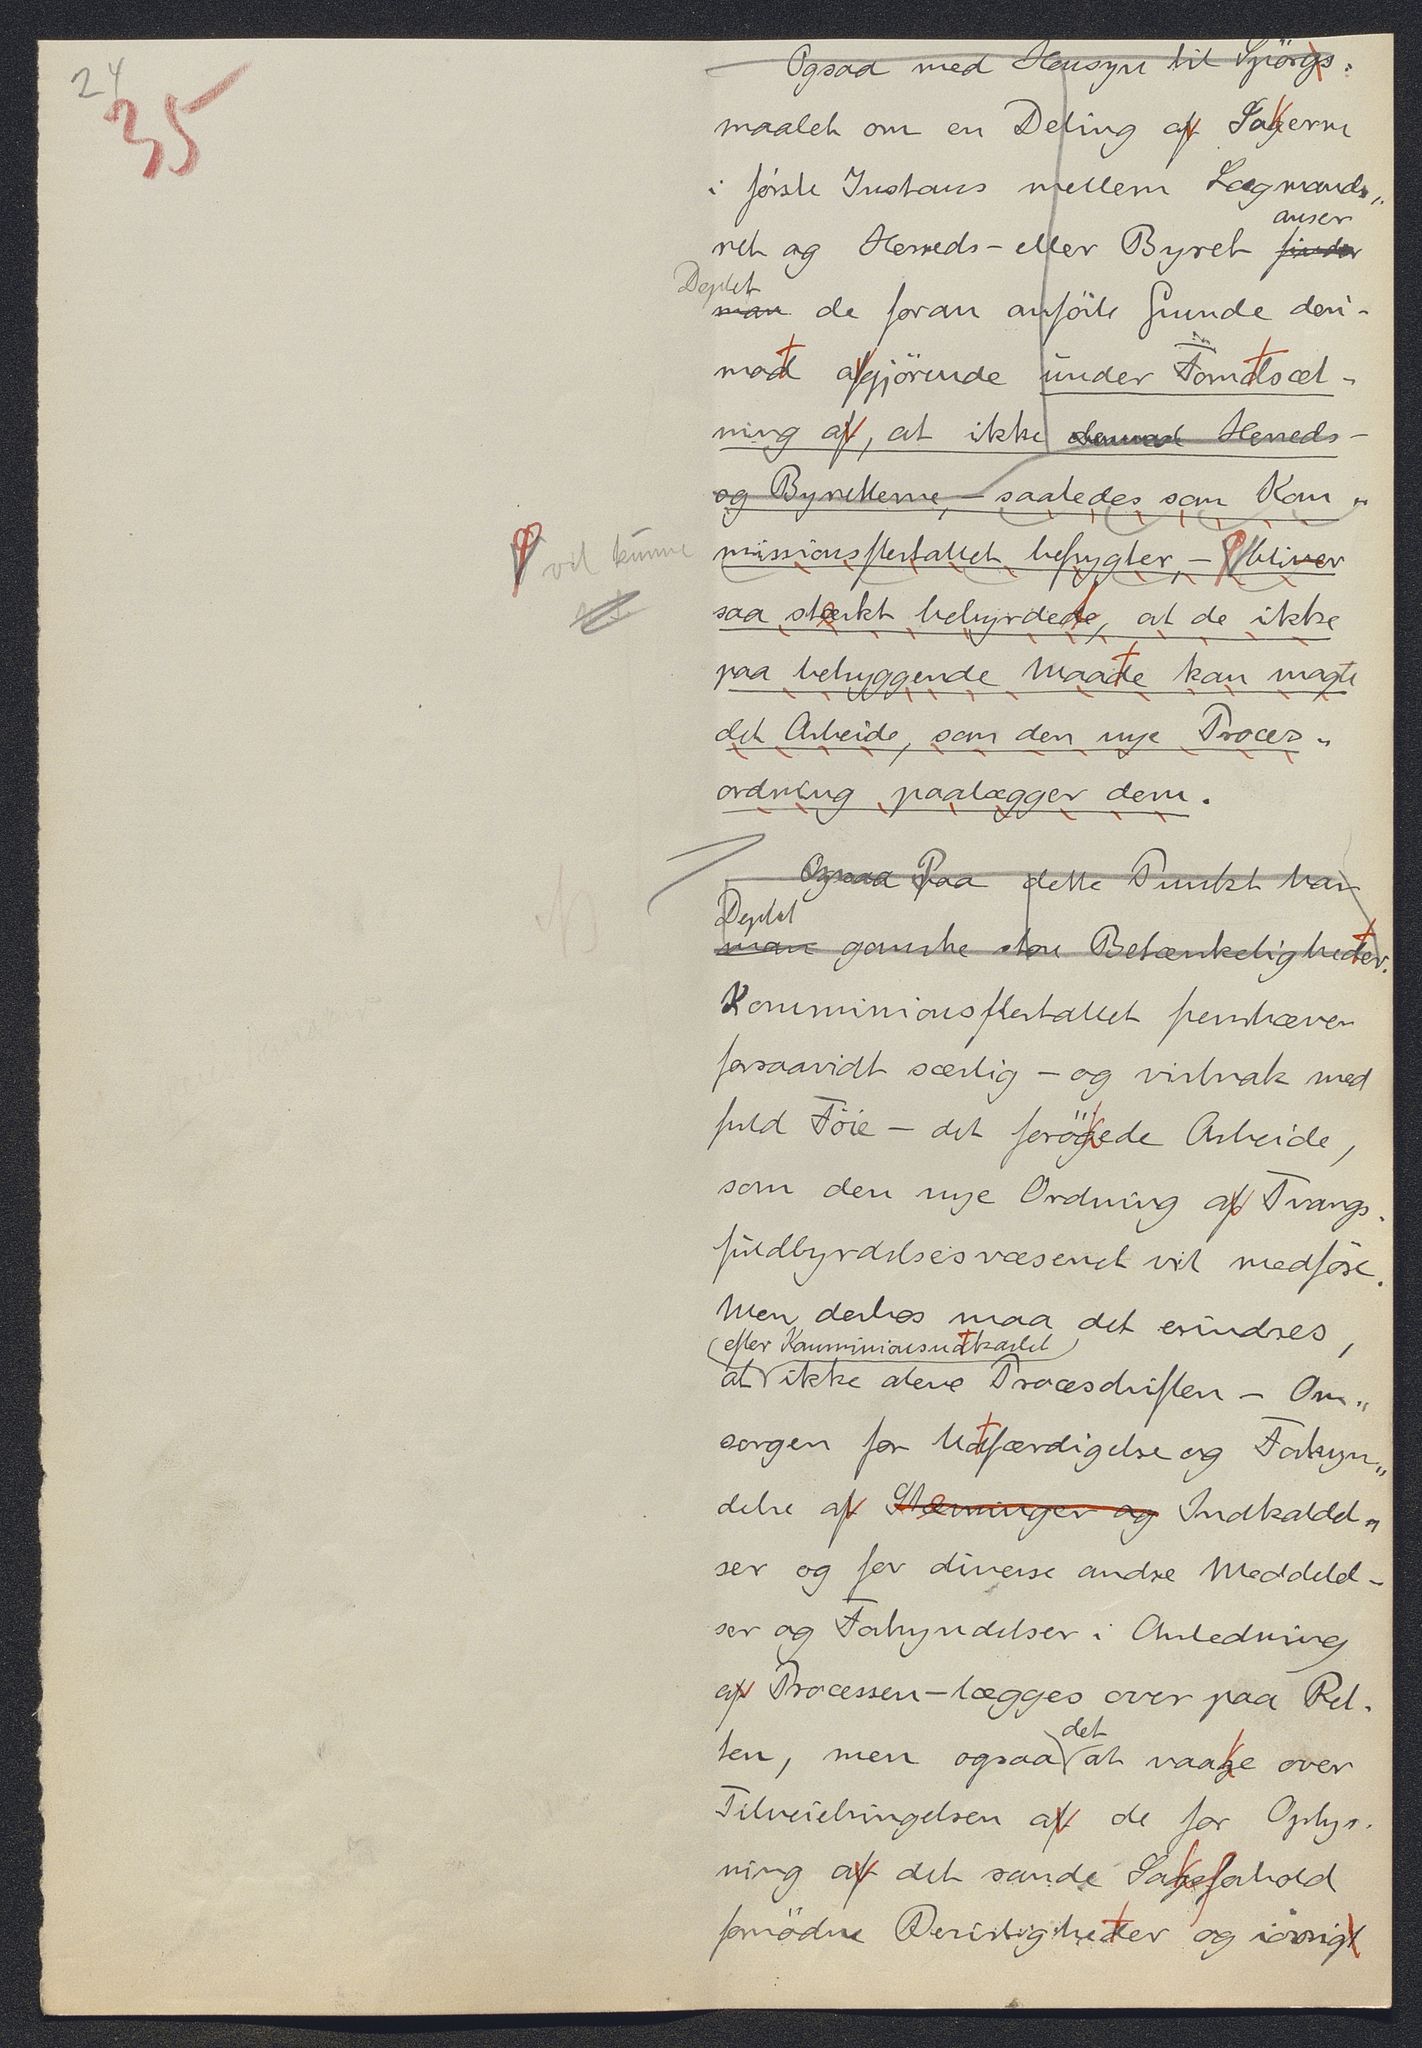 24
35
Ogsaa med Hensyn til Spörgs-
maalet om en Deling af Sakerne
i første Instans mellem Lagmands-
anser
ret og Herreds- eller Byret finder
Deptet
man de foran anförte Grunde deri-
mod afgjörende under Forudsæt-
ning af, at ikke Herreds-
og Byretterne, - saaledes som Kom-
missionsflertallet befrygter, - bliver
vil kunne
saa stærkt bebyrdede, at de ikke
paa betryggende Maade kan magte
det Arbeide, som den nye Proces-
ordning paalægger dem.
Ogsaa Paa dette Punkt har
Deptet
man ganske store Betænkeligheder.
Kommissionsflertallet fremhæver
forsaavidt særlig - og vistnok med
fuld Föie - det forögede Arbeide,
som den nye Ordning af Tvangs-
fuldbyrdelsesvæsenet vil medföre.
Men derhos maa det erindres,
efter Kommissionsudkastet
at ikke alene Procesdriften - Om-
sorgen for Udfærdigelse og Forkyn-
delse af Stævninger og Indkaldel-
ser og for diverse andre Meddelel-
ser og Forkyndelser i Anledning
af Processen - lægges over paa Ret-
det
ten, men ogsaa at vaage over
Tilveiebringelsen af de for Oplys-
ning af det sande Sagsforhold
fornödne Bevisligheder og iövrigt